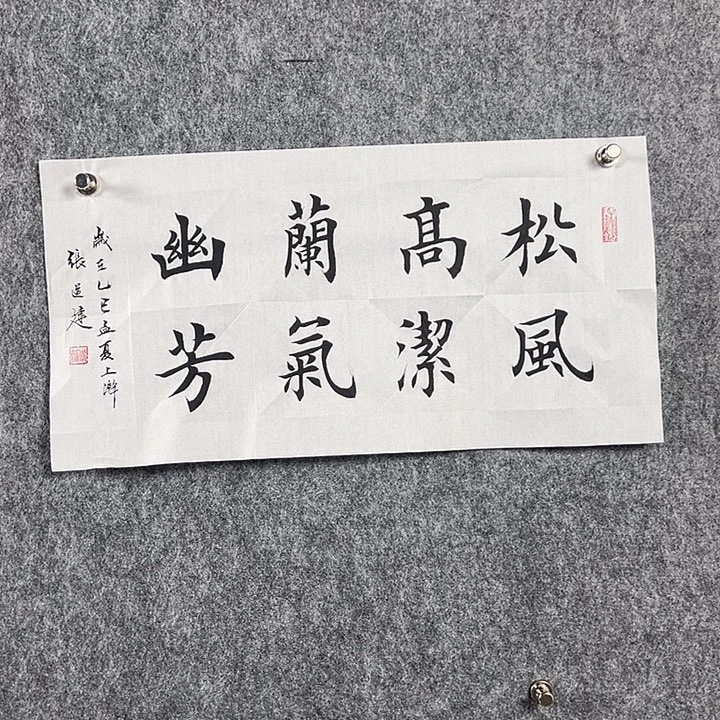 松風
高潔
蘭氣
幽芳
歲在乙巳孟夏上澣
張道建